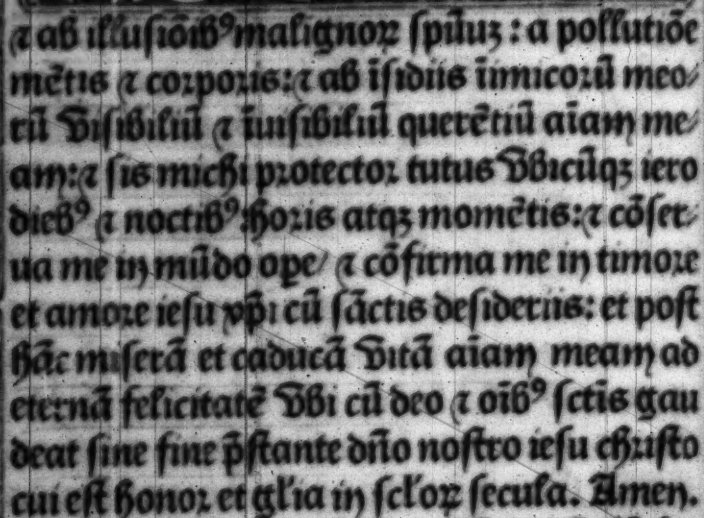 ⁊ ab illuſiōib⁹ malignoꝝ ſpūuꝫ : a pollutiōe
mētis ⁊ coꝛpoꝛis: ⁊ ab īſidiis īimicoꝛū meo⸗
rū viſibiliū ⁊ īuiſibiliū querētiū aīam me⸗
am: ⁊ ſis michi pꝛotectoꝛ tutus vbicūqꝫ iero
dieb⁹ ⁊ noctib⁹: hoꝛis atqꝫ momētis: ⁊ cōſer⸗
ua me in mūdo ope/ ⁊ cōfirma me in timoꝛe
et amoꝛe ieſu xp̄i cū ſāctis deſideriis: et poſt
hāc miſerā et caducā vitā aīam meam ad
eternā felicitatē vbi cū deo ⁊ oīb⁹ ſctīs gau
deat ſine fine p̄ſtante dn̄o noſtro ieſu chꝛiſto
cui eſt honoꝛ et gl'ia in ſcl'oꝝ ſecula. Amen.